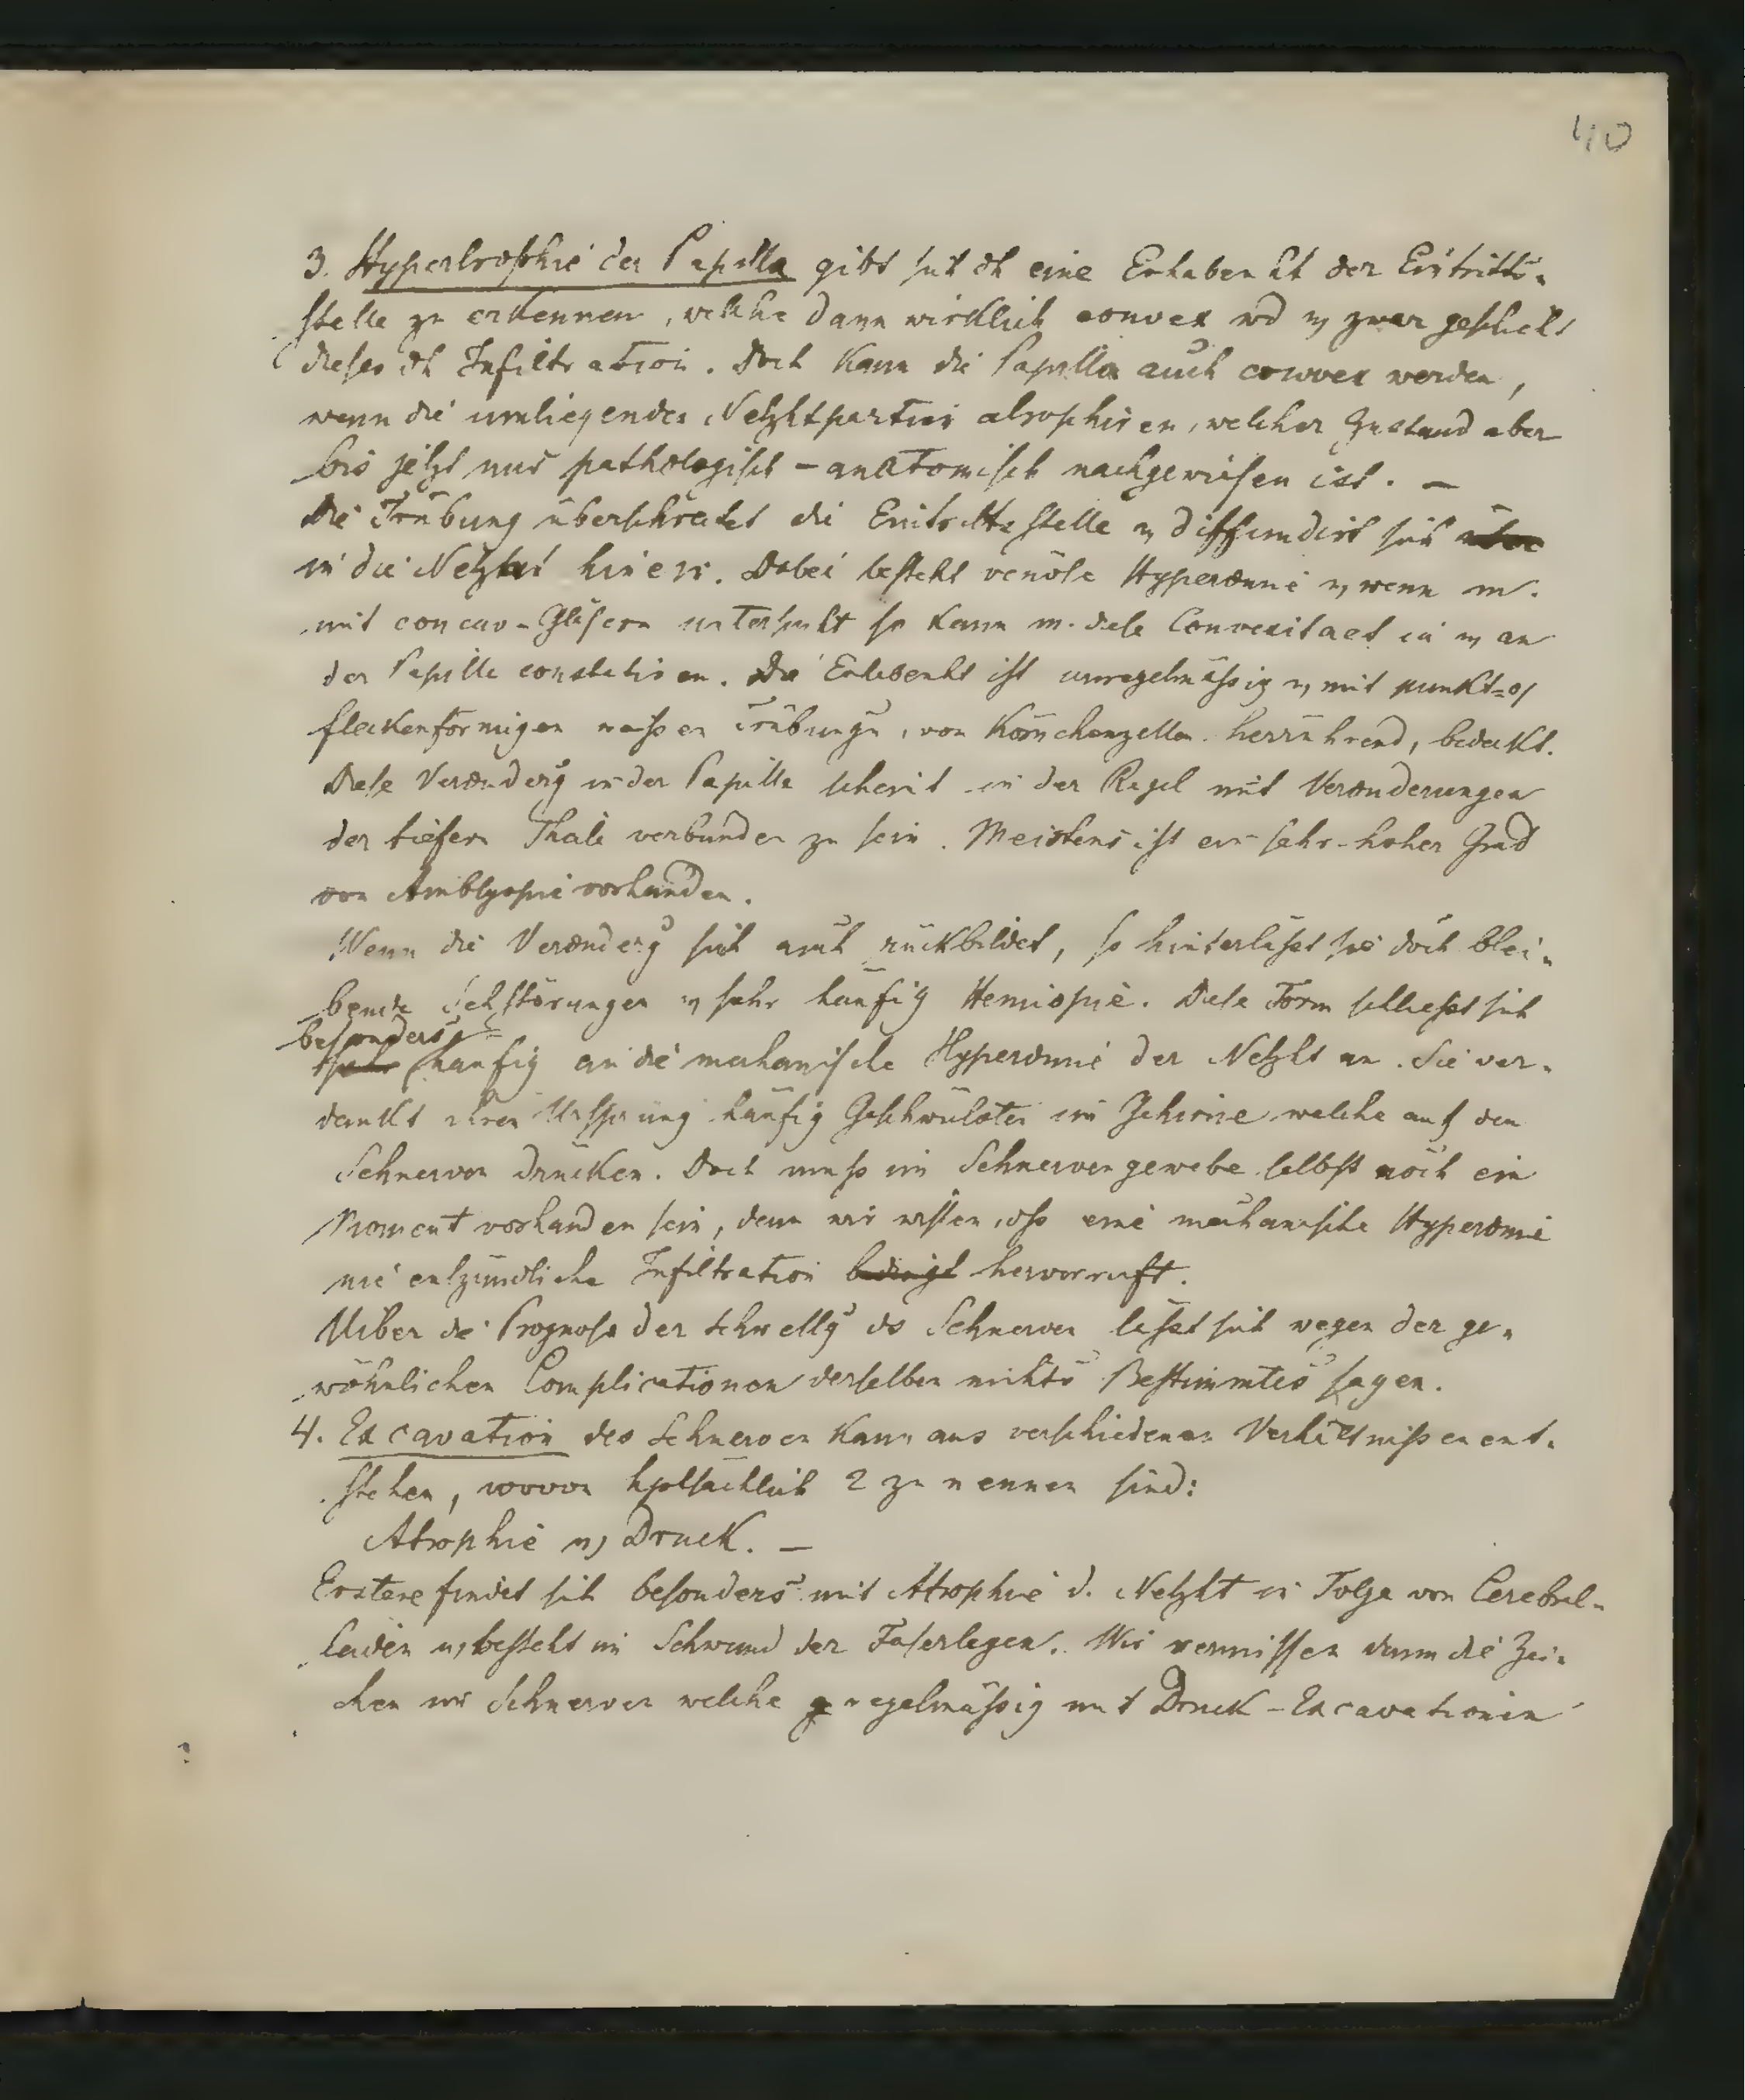 40
3. Hypertrophie der Papilla gibt sich dh eine Erhabenht der Eintritts-
stelle zu erkennen, welche dann wirklich convex wd u zwar geschieht
dieses dh Infiltration. Doch kann die Papilla auch convex werden,
wenn die umliegenden Netzhtpartien atrophiren, welcher Zustand aber
bis jetzt nur pathologisch-anatomisch nachgewiesen ist. —
Die Trübung überschreitet die Eintrittsstelle u diffundirt sich
in die Netzhaut hinein. Dabei besteht venöse Hyperämie u, wenn m.
mit concav-Gläsern untersucht so kann m. diese Convexitaet in u an
der Papille constatiren. Die Erhabenht ist unregelmässig u, mit punkt= od
fleckenförmigen weissen Trübungen, von Körnchenzellen herrührend, bedeckt.
Diese Veränderg in der Papille scheint in der Regel mit Veränderungen
der tiefern Theile verbunden zu sein. Meistens ist ein sehr hoher Grad
von Amblyopie vorhanden.
Wenn die Veränderg sich auch rückbildet, so hinterlässt sie doch blei-
bende Sehstörungen u sehr häufig Hemiopie. Diese Form schliesst sich
besonders
sehr häufig an die mechanische Hyperämie der Netzht an. Sie ver-
dankt ihren Ursprung häufig Geschwülsten im Gehirne welche auf den
Sehnerven drücken. Doch muss im Sehnervengewebe selbst noch ein
Moment vorhanden sein, denn wir wissen, dss eine mechanische Hyperämie
nie entzündliche Infiltration bedingt hervorruft.
Ueber die Prognose der Schwellg ds Sehnerven lässt sich wegen der ge-
wöhnlichen Complicationen derselben nichts Bestimmtes sagen.
4. Excavation des Sehnerven kann aus verschiedenen Verhältnissen ent-
stehen, wovon hptsächlich 2 zu nennen sind:
Atrophie u, Druck. —
Erstere findet sich besonders mit Atrophie d. Netzht in Folge von Cerebral-
leiden u, besteht im Schwund der Faserlagen. Wir vermissen dann die Zei-
chen im Sehnerven welche regelmässig mit Druck-Excavationen